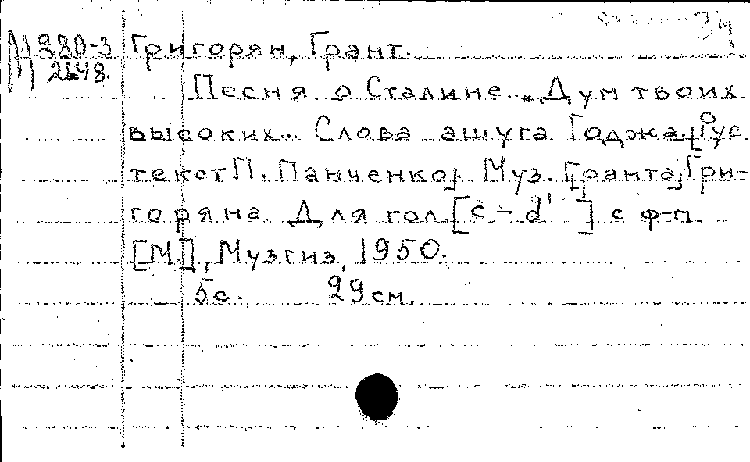 34
М 280-3 Григорян, Грант.
2648. Песня о Сталине „Дум твоих
высоких". Слова ашуга Годжа [Рус.
текст П. Панченко] Муз. [Гранта] Гри-
горяна. Для гол. [c - d' ] с ф-п.
[М.], Музгиз, 1950.
5с. 29см.